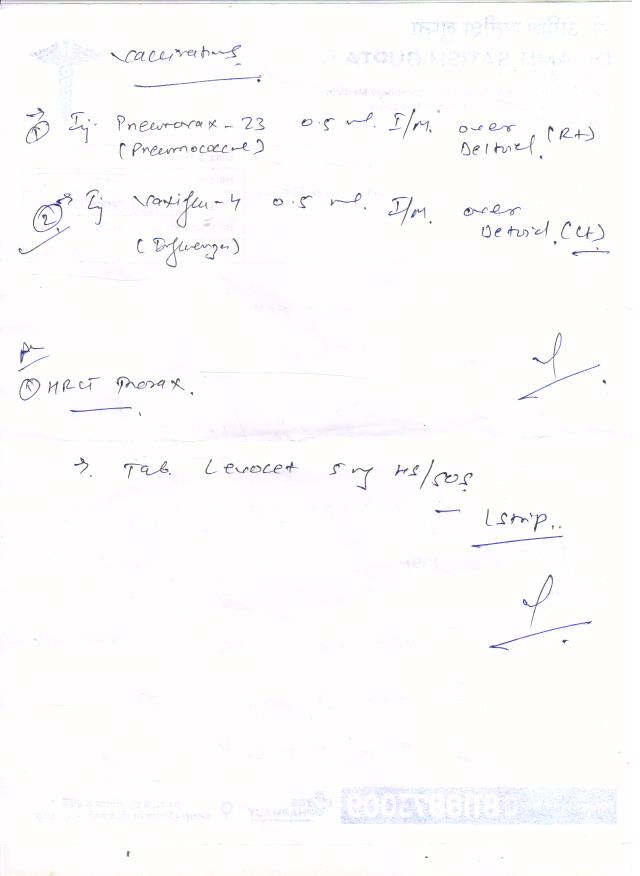 Vaccinations
→ ① Inj. Pneumovax-23 0.5 ml. I/M. over Deltoid. (Rt)
(Pneumococcal)
② Inj Vaxiflu-4 0.5 ml. I/M. over Deltoid. (Lt)
(Influenza)
① HRCT Thorax.
→. Tab. Levocet 5 mg HS/SOS
– 1 strip..